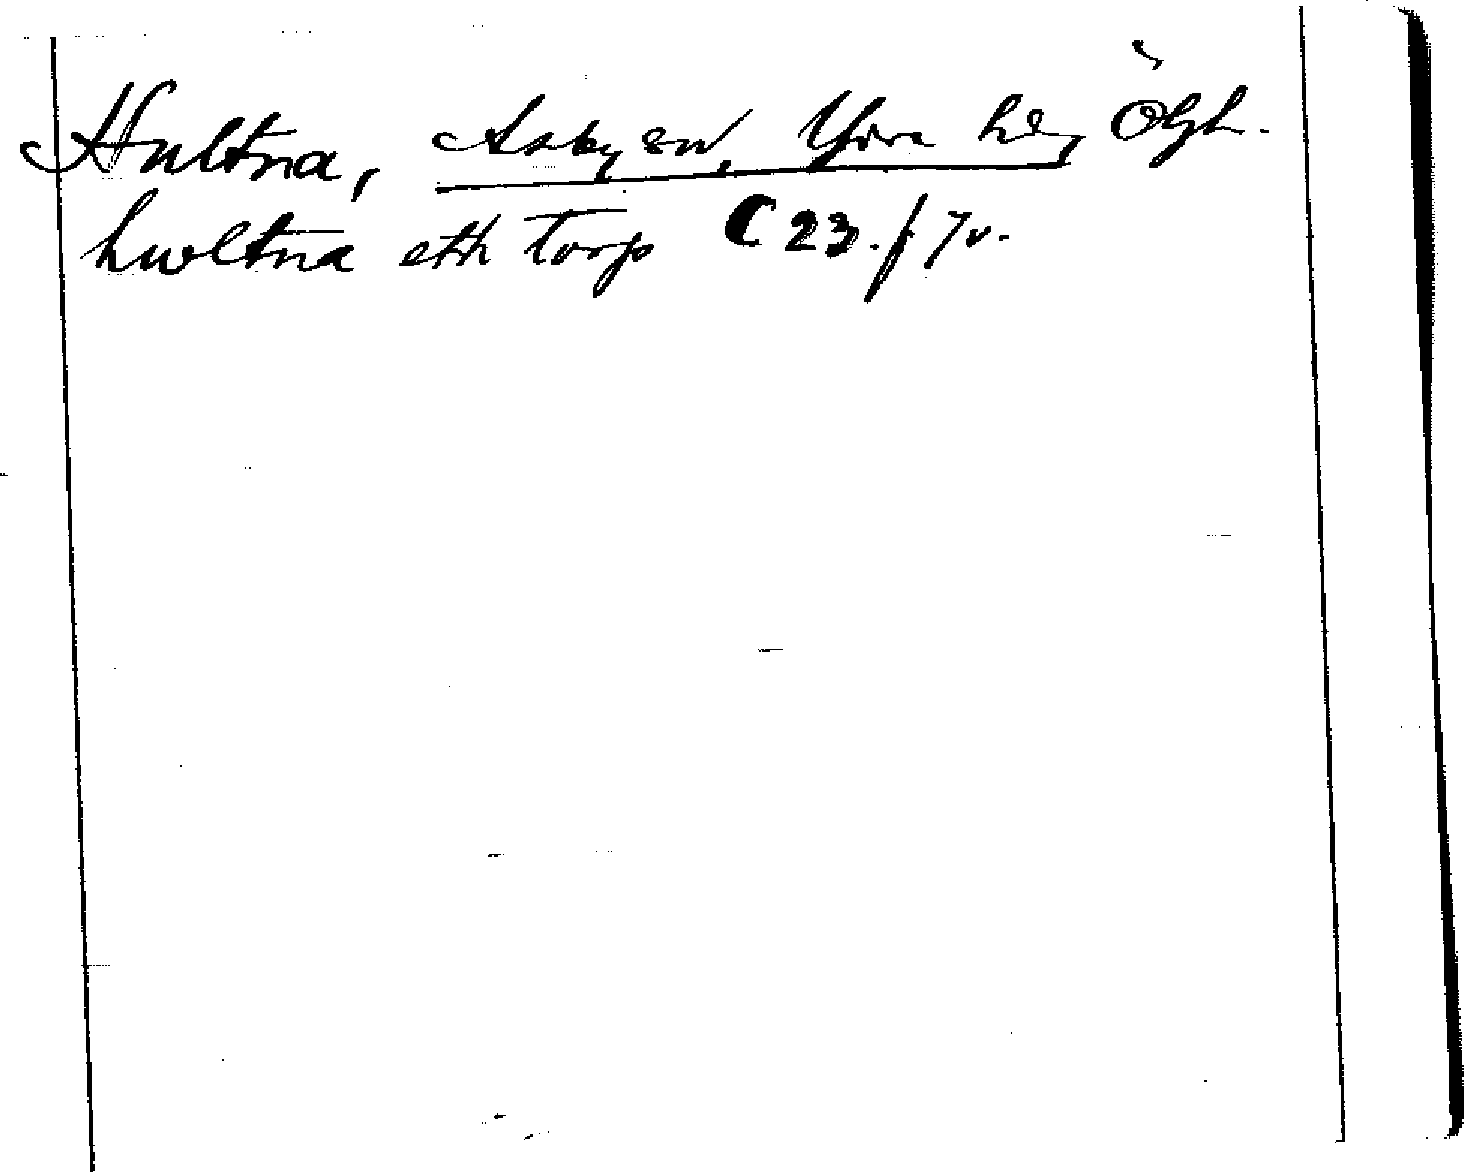 Hultna, Asby sn, Ydre hd, Ögl.
hwltna ett torp C 23. f 7v.